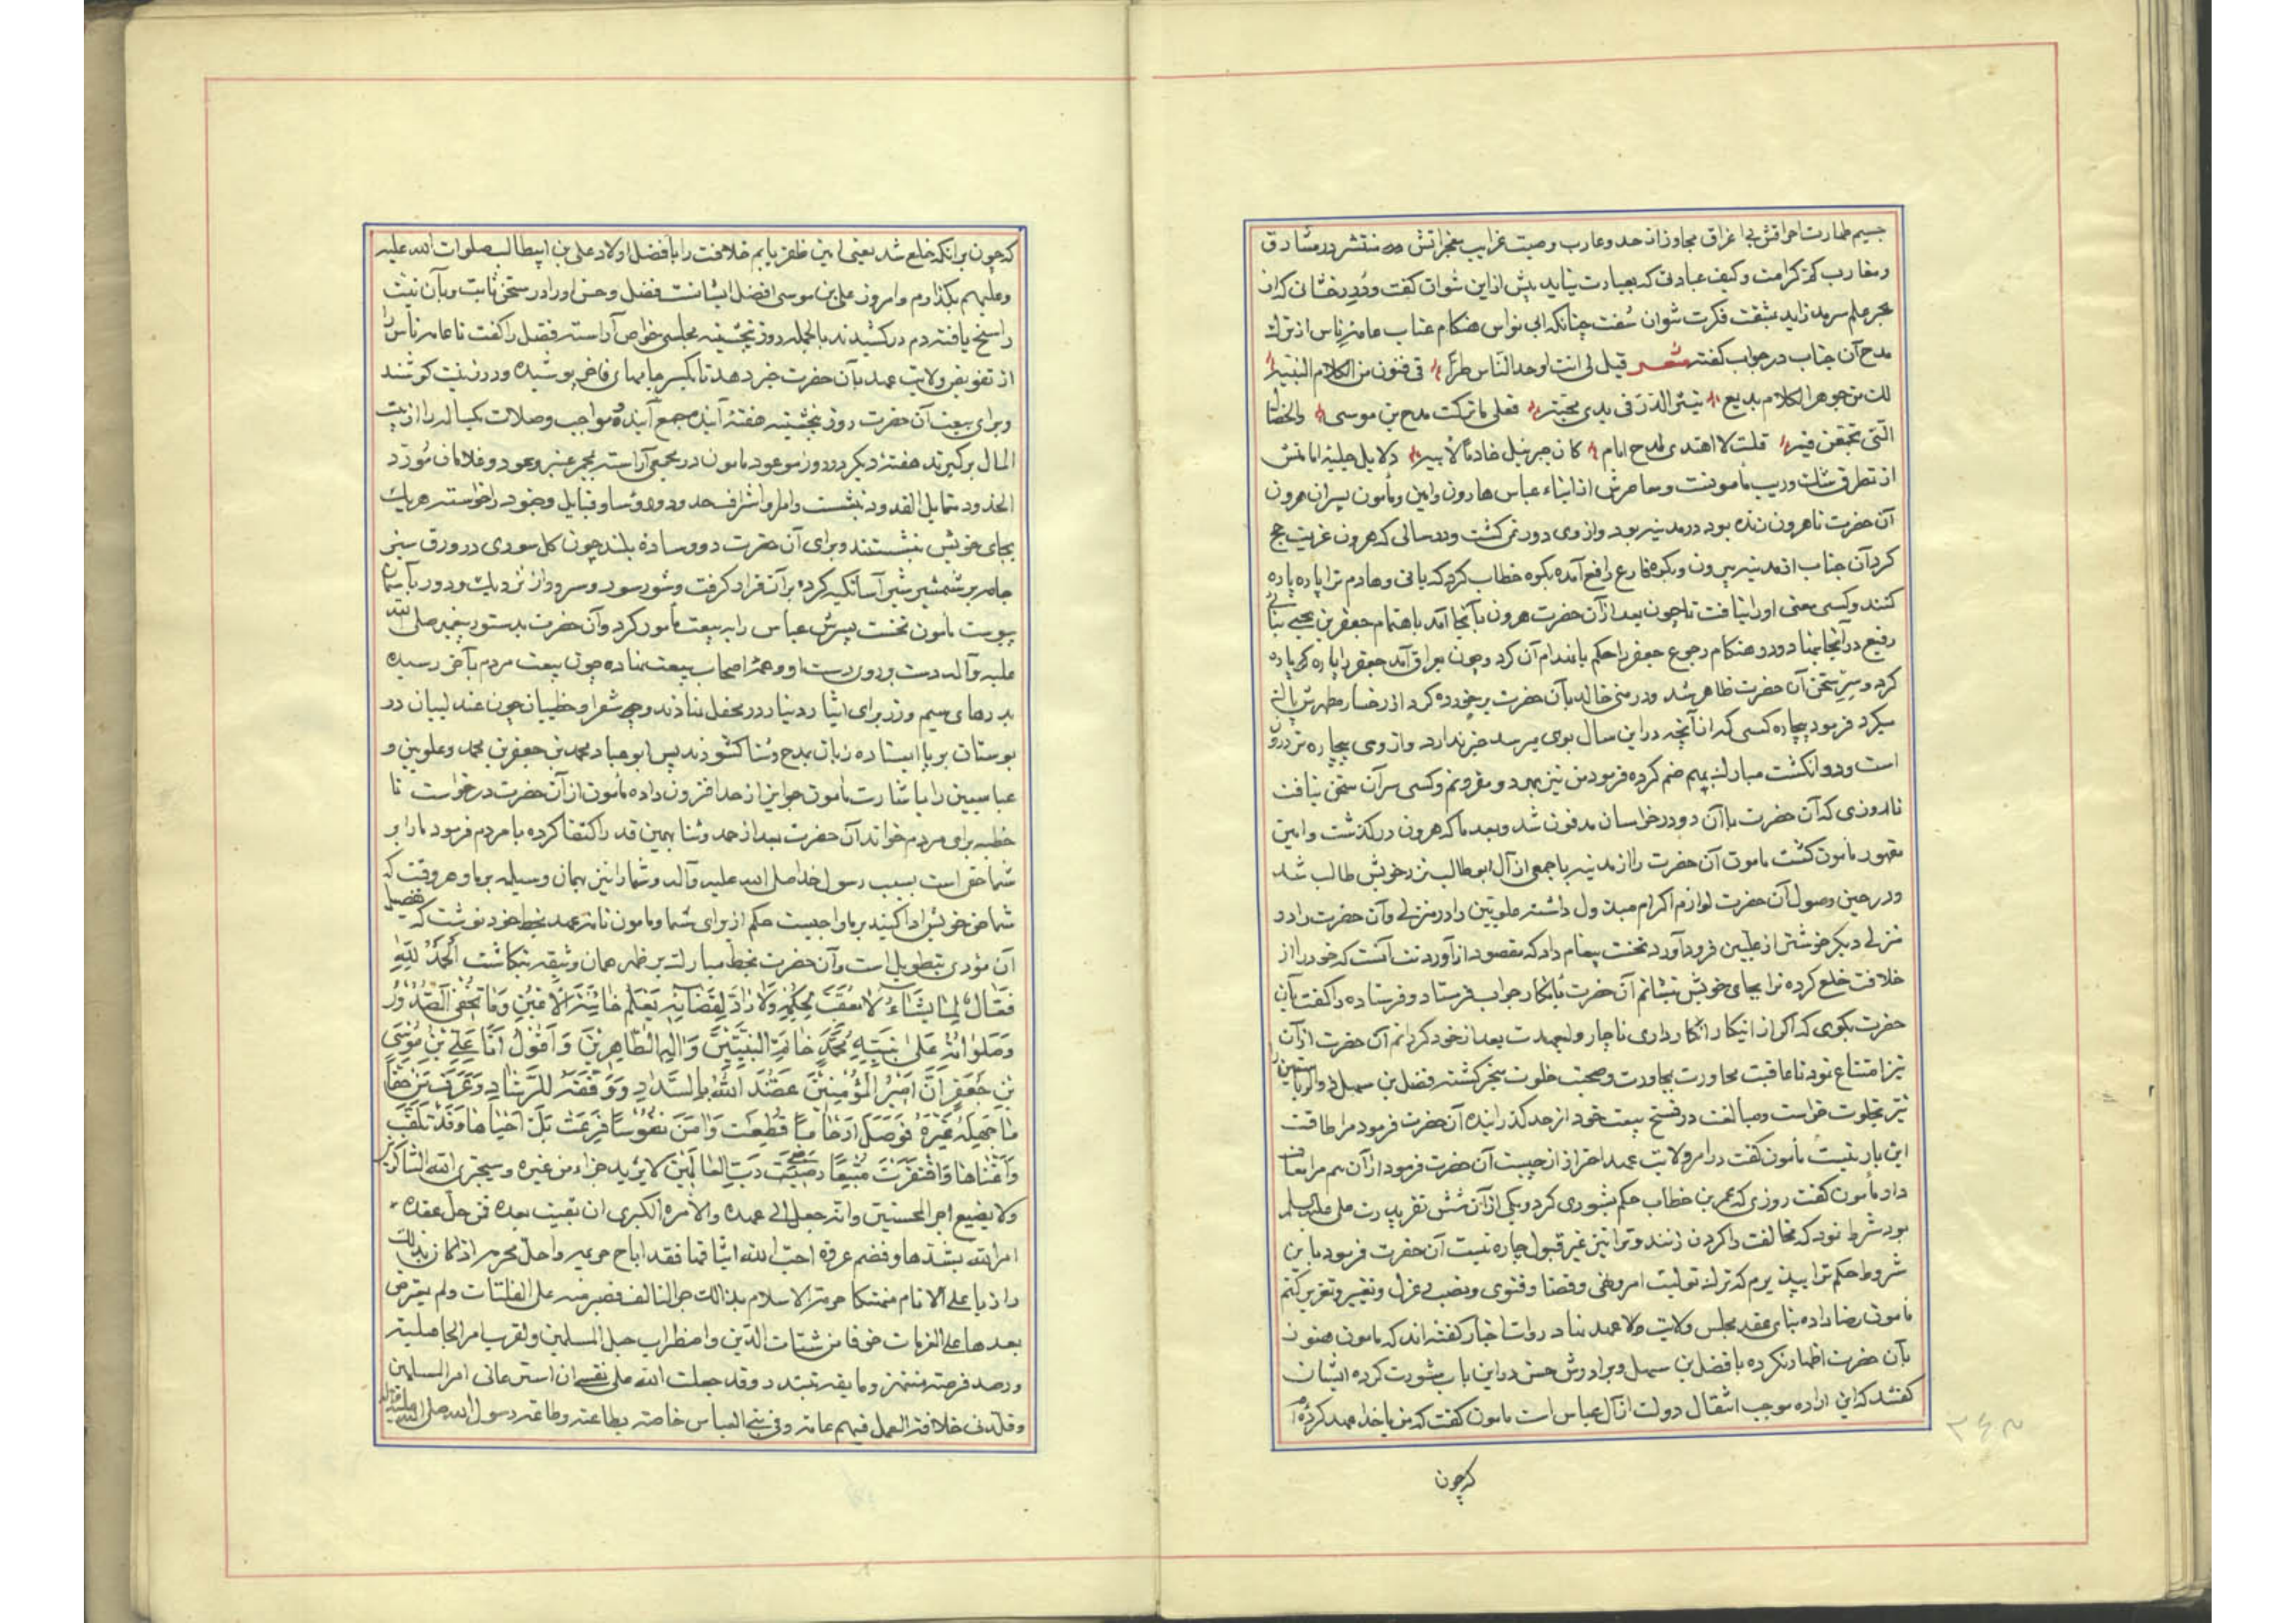 جسیم طهارت اعراقش بی اغراق مجاوز از حد و عارب وصیت غرایب معجزاتش منتشر در مشارق
و مغارب کرامت و کیف عبادتی که بعبارت نیاید بیش ازین نتوان گفت و دُرِ درخشانی که از
بحر علم سرمد زاید بثقت فکرت نتوان سُفت چنانکه ابی نواس هنکام عتاب عامه ناس از ترک
مدح آن جناب در جواب گفته شعر قیل لی انت اوحد الناس طرّاً فی فنون من الکلام النبیه
لک من جوهر الکلام بدیع یثمر الدرّ فی یدی مجتنیه فعلی ما ترکت مدح بن موسی والخصال
التی تجمعن فیه قلت لا اهتدی لمدح امام کان جبرئیل خادماً لابیه دلایل جلیه امامتش
از تطرق شک و ریب مأمونست و معاصرش از ابناء عباس هارون و امین و مأمون پسران هرون
آن حضرت تا هرون زنده بود در مدینه بود و از وی دور نمی کشت و در سالی که هرون عزیمت حج
کرد آن جناب از مدینه بیرون و بکوه فارع رافع آمده بکوه خطاب کرد که بانی و هادم ترا پاره پاره
کنند و کسی معنی اورا نیافت تا چون بعد از آن حضرت هرون بآنجا آمد باهتمام جعفر بن یحیی بنائی
رفیع در آنجا بنهاد و در هنکام رجوع جعفر را حکم بانهدام آن کرد و چون بعراق آمد جعفر را پاره پاره
کرد و سرّ سخن آن حضرت ظاهر شد و در منی خالد بآن حضرت بر خورده کرد از رخسار مطهرش پاک
میکرد فرمود بیچاره کسی که از آنچه در این سال بوی میرسد خبر ندارد و از وی بیچاره تر هرون
است و دو انکشت مبارک بهم ضم کرده فرمود من نیز بهرد و مقرونم و کسی سر آن سخن نیافت
تا روزی که آن حضرت با آن دو در خراسان مدفون شد و بعد ما که هرون در کذشت و امین
مقهور مأمون کشت مامون آن حضرت را از مدینه با جمعی از آل ابو طالب نزد خویش طالب شد
و در حین وصول آن حضرت لوازم اکرام مبذول داشته علویین را در منزلی و آن حضرت را در
منزلی دیکر خوشتر از علیین فرود آورد نخست پیغام داد که مقصود از آوردنت آنست که خود را از
خلافت خلع کرده ترا بجای خویش نشانم آن حضرت بانکار جواب فرستاد و فرستاده را کفت بآن
حضرت بکوی که اکر از اینکار انکار داری ناچار ولیعهدت بعد از خود کردانم آن حضرت از آن
نیز امتناع نمود تا عاقبت محاورت بمجاورت و صحبت خلوت منجر کشته فضل بن سهل ذو الریاستین را
نیز بخلوت خواست و مبالغت در فسخ بیعت خود از حد کذرانیده آن حضرت فرمود مرا طاقت
این بار نیست مأمون کفت در امر ولایت عهد احتراز از چیست آن حضرت فرمود از آن هم مرا معاف
دار مأمون کفت روزی که عمر بن خطاب حکم بشوری کرد و یکی از آن شش تن پدرت علی علیه السلم
بود شرط نمود که مخالفت را کردن زنند و ترا نیز غیر قبول چاره نیست آن حضرت فرمود باین
شروط حکم ترا بپذیرم که ترک تولیت امر و نهی و قضا و فتوی و نصب و عزل و تغییر و تقریر کنم
مامون رضا داده بنای عقد مجلس ولایت ولاء عهد نهاد روات اخبار کفته اند که مامون هنوز
بآن حضرت اظهار نکرده با فضل بن سهل و برادرش حسن در این باب مشورت کرده ایشان
کفتند که این اراده موجب انتقال دولت از آل عباس است مامون کفت که من با خدا عهد کرده ام
که چون
که چون بر آنکه خلع شد یعنی امین ظفر یابم خلافت را بأفضل اولاد علی بن ابیطالب صلوات الله علیه
و علیهم بکذارم و امروز علی بن موسی افضل ایشانست فضل و حسن اورا در سخن ثابت و بآن نیت
راسخ یافته دم در کشیدند بالجمله روز پنجشنبه مجلسی خواص آراسته فضل را کفت تا عامه ناس را
از تفویض ولایت عهد بآن حضرت خبر دهد تا یکسر جامهای فاخر پوشیده و در زینت کوشند
و برای بیعت آن حضرت روز پنجشنبه هفتهٔ آینده مجمع آیند و مواجب و صلات یکساله را از بیت
المال برکیرند هفتهٔ دیکر در روز موعود مامون در مجمعی آراسته بمجمر عنبر و عود و غلامان مُورّد
الخدود متمایل القدود بنشست و امرا و اشراف حدود و رؤسا و قبایل و جنود را خواسته هر یک
بجای خویش بنشستند و برای آن حضرت دو وسادهٔ بلند چون کل سوری در ورق سبز
جامه بر شمشیر شیر آسا تکیه کرده بر آن قرار کرفت و شور سور و سرود از نزدیک و دور بآسمان
پیوست مامون نخست پسرش عباس را به بیعت مأمور کرد و آن حضرت بدستور پیغمبر صلی الله
علیه و آله دست بر روی دست او و همهٔ اصحاب بیعت بنهاده چون بیعت مردم بآخر رسیده
بدرهای سیم و زر برای ایثار دینار در محفل نهادند و شعرا و خطیبان چون عندلیبان در
بوستان بر پا ایستاده زبان بمدح و ثنا کشودند پس ابو عباد محمد بن جعفر بن محمد و علویین و
عباسیین را باشارت مامون جوایز از حد افزون داده مأمون از آن حضرت درخواست تا
خطبه برای مردم خواند آن حضرت بعد از حمد و ثنا بهمین قدر اکتفا کرده با مردم فرمود مارا بر
شما حقی است بسبب رسول خدا صلی الله علیه و آله و شما را نیز بهمان وسیله بر ما و هر وقت که
شما حق خویش ادا کنید بر ما واجبست حکم از برای شما و مامون نامهٔ عهد بخط خود نوشت که تفصیل
آن مؤدی بتطویل است و آن حضرت بخط مبارک بر ظهر همان وثیقه نکاشت اَلحَمدُ لِلّهِ
الفَعّالِ لِما یَشاءُ لا مُعَقِّبَ لِحُکمِهِ وَلا رادَّ لِقَضائِهِ یَعلَمُ خائِنَةَ الاَعیُنِ وَما تُخفِی الصُّدُورُ
وَصَلَواتُهُ عَلی نَبِیِّهِ مُحَمَّدٍ خاتَمِ النَّبِیّینَ وَآلِهِ الطّاهِرینَ وَ اَقُولُ اَنَا عَلِیُّ بنُ مُوسَی
بنِ جَعفَرٍ اِنَّ اَمیرَ المُؤمِنینَ عَضَدَهُ اللهُ بِالسَّدادِ وَوَفَّقَهُ لِلرَّشادِ وَعَرَفَ مِن حَقِّنا
ما جَهِلَهُ غَیرُهُ فَوَصَلَ اَرحاماً قُطِعَت وَاَمَنَ نُفُوساً فَزِعَت بَل اَحیاها وَقَد تَلِفَت
وَاَغناها وَافتَقَرَت مُتَّبِعاً رِضی رَبِّ العالَمینَ لا یرید جزاء من غیره و سیجزی الله الشاکرین
ولا یضیع اجر المحسنین وانه جعل الی عهده والامرة الکبری ان بقیت بعده فمن حل عقده
امر الله بشدها و فصم عروة احب الله ایثاقها فقد اباح حریمه واحل محرمه اذا کان بذلک
زاریا علی الامام منتهکا حرمة الاسلام بذلک جری السالف فصبر منه علی الفلتات ولم یعترض
بعدها علی العزمات خوفا من شتات الدین واضطراب حبل المسلمین ولقرب امر الجاهلیة
ورصد فرصة تنتهز وبایقه تبتدر وقد جعلت الله علی نفسی ان استرعانی امر المسلمین
وقلدنی خلافته العمل فیهم عامة وفی بنی العباس خاصة بطاعته وطاعة رسول الله صلی الله علیه و آله